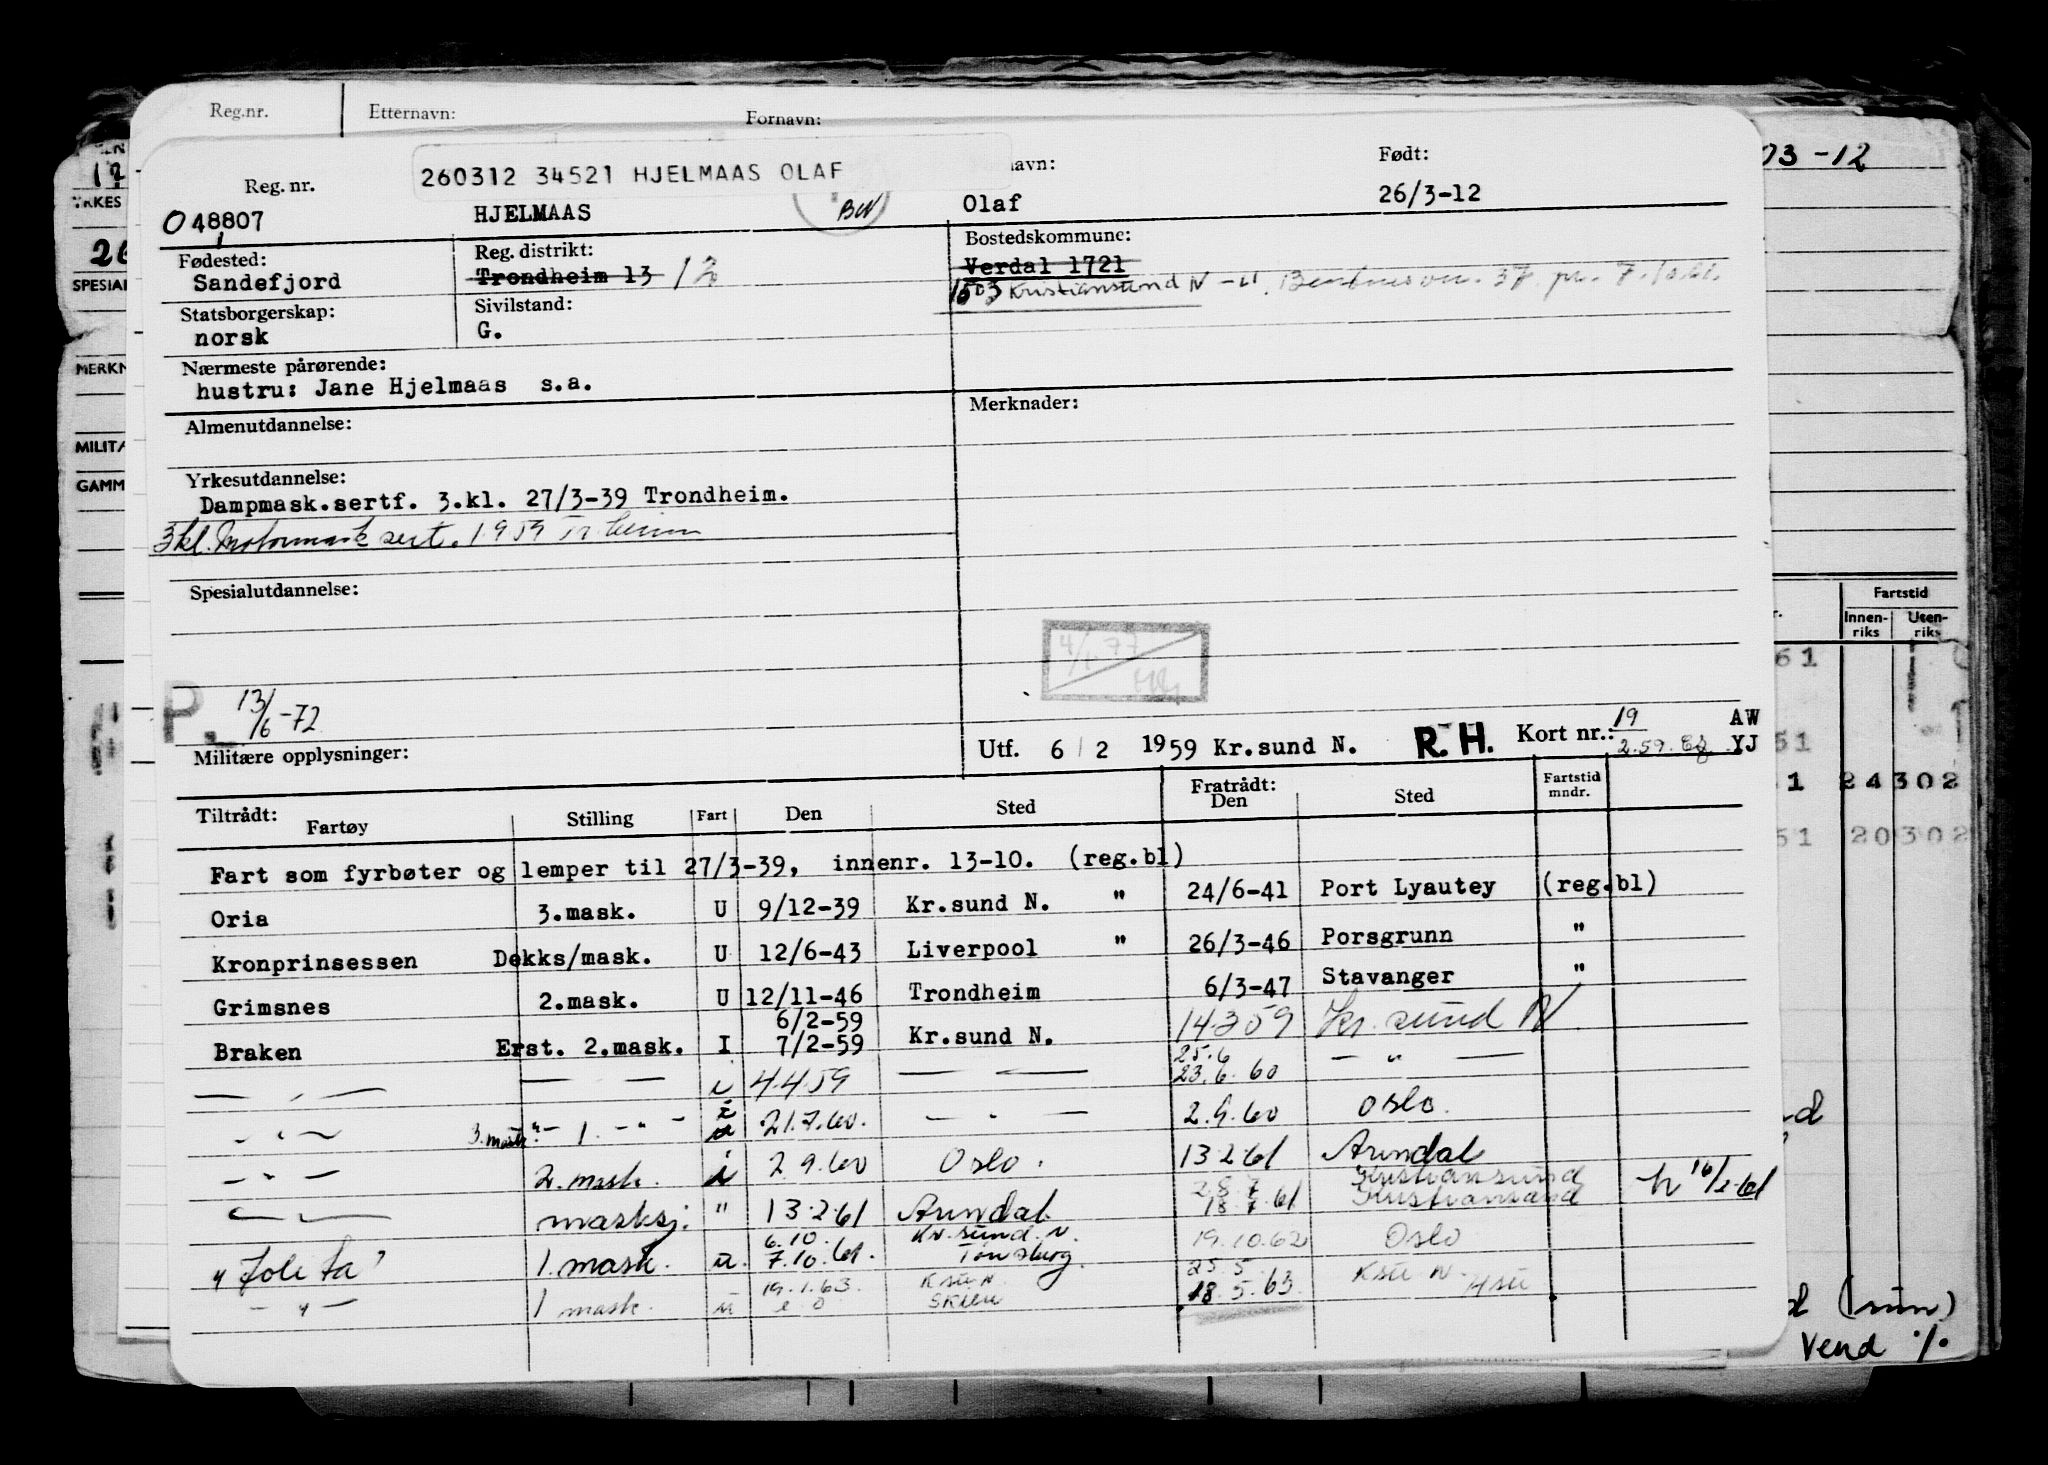 Reg.nr. Etternavn: Fornavn:
260312 34521 HJELMAAS OLAF
Reg. nr. avn: Født:
048807 HJELMAAS BW Olaf 26/3-12
Fødested: Reg. distrikt: Bostedskommune:
Sandefjord Trondheim 13 12 Verdal 1721
1503 Kristiansund N
Statsborgerskap: Sivilstand:
norsk G.
Nærmeste pårørende:
hustru: Jane Hjelmaas s.a.
Almenutdannelse: Merknader:
Yrkesutdannelse:
Dampmask.sertf. 3.kl. 27/3-39 Trondheim.
3kl. Motormask sert. 1959 Tr.heim
Spesialutdannelse:
4/1.77
P. 13/6-72
Militære opplysninger: Utf. 6/2 1959 Kr.sund N. R.H. Kort nr.: 19/2.59. AW
YJ
Tiltrådt: Fratrådt:
Fartøy Stilling Fart Den Sted Den Sted Fartstid mndr.
Fart som fyrbøter og lemper til 27/3-39, innenr. 13-10. (reg.bl)
Oria 3.mask. U 9/12-39 Kr.sund N. " 24/6-41 Port Lyautey (reg.bl)
Kronprinsessen Dekks/mask. U 12/6-43 Liverpool " 26/3-46 Porsgrunn "
Grimsnes 2.mask. U 12/11-46 Trondheim 6/3-47 Stavanger "
6/2-59
Braken Erst. 2.mask. I 7/2-59 Kr.sund N. 14.3 59 Kr. sund N
25.6
— " — — — i 4.4.59 — — 23.6.60 — " —
— " — 3.mask. — 1. — " — i u 21.7.60. — " — 2.9.60 Oslo.
— " — 2. mask. i 2.9.60 Oslo. 13.2.61 Arendal
28.7 Kristiansund
— — masksj. " 13.2.61 Arendal 18.7.61 Kristiansand 16/2-61
6.10. Kr.sund. N.
" Jole Fa" 1. mask. u. 7.10.61. Tønsberg. 19.10.62 Oslo
19.1.63. Ksu N 25.5 Ksu N.
— " — 1 mask. u Skien 18.5.63
03-12
EN
12
YRKES
26
SPESIAL
MERKN
MILITÆ
GAMM
Fartstid
Innen-riks Uten-riks
61
51
1 24302
51 20302
d (sun)
Vend ./.